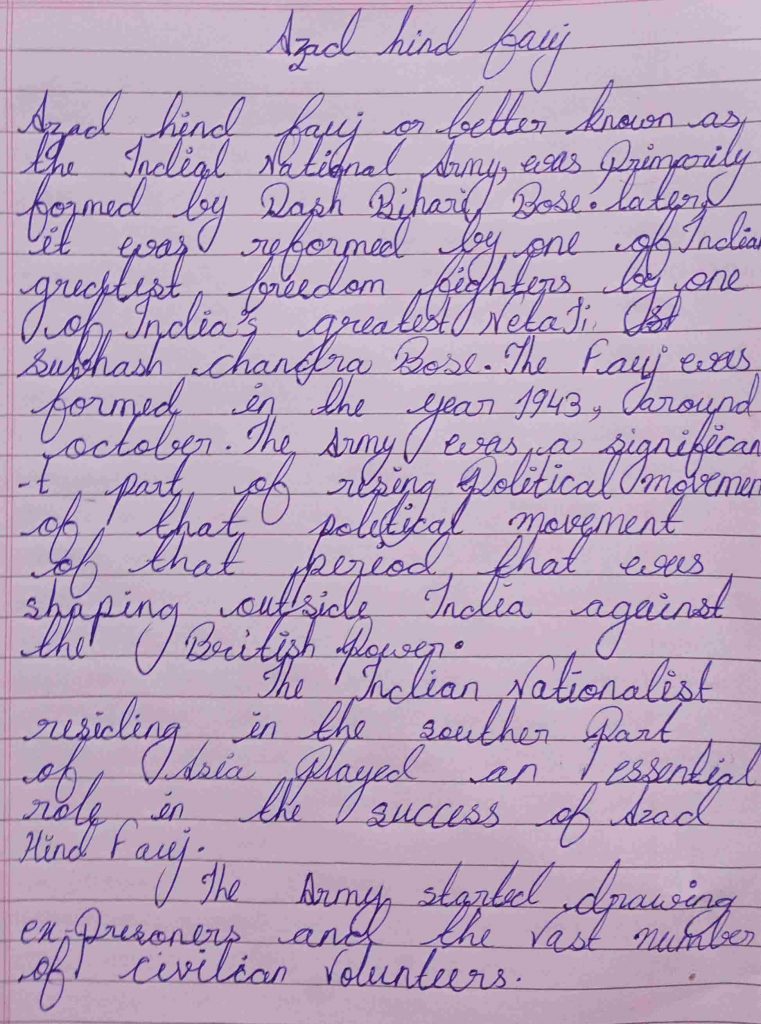 Azad hind fauj
Azad hind fauj or better known as
the Indial National Army, was Primporily
formed by Dash Bihari Bose. later
it was reformed by one of India
grectest freedom fighters by one
of India's greatest NetaJi
subhash chandra Bose. The Fauj was
formed in the year 1943, around
october. The Army was a significan
-t part of rising Political movemen
of that political movement
of that period that was
shaping outside India against
the British Power.
The Indian Nationalist
residing in the souther Part
of Asia Played an essential
role in the success of Azad
Hind Fauj.
The Army started drawing
ex-Prisoners and the vast number
of civilian Volunteers.